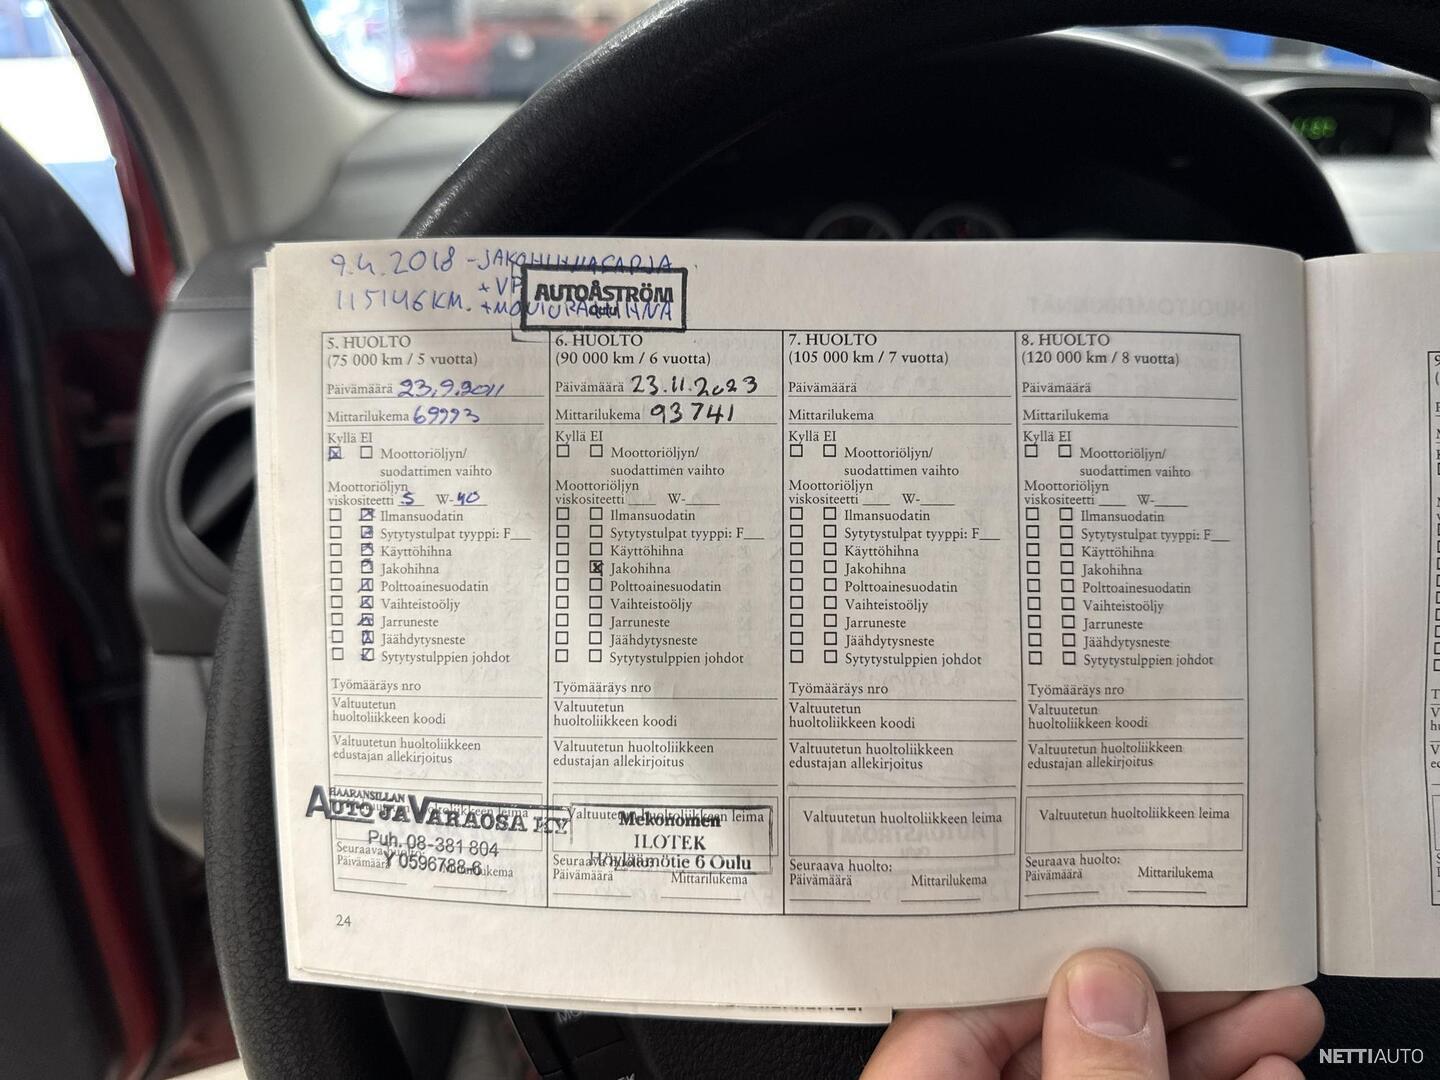 9.4.2018 -JAKOHIHNASARJA
+VP
115146KM. +MONIURAHIHNA
AUTOÅSTRÖM
Oulu
5. HUOLTO
(75 000 km / 5 vuotta)
Päivämäärä 23.9.2011
Mittarilukema 69993
Kyllä EI
Moottoriöljyn/
suodattimen vaihto
Moottoriöljyn
viskositeetti 5 W-40
Ilmansuodatin
Sytytystulpat tyyppi: F___
Käyttöhihna
Jakohihna
Polttoainesuodatin
Vaihteistoöljy
Jarruneste
Jäähdytysneste
Sytytystulppien johdot
Työmääräys nro
Valtuutetun
huoltoliikkeen koodi
Valtuutetun huoltoliikkeen
edustajan allekirjoitus
HAARANSILLAN
AUTO JA VARAOSA KY
Puh. 08-381 804
Y 0596788-6
Seuraava huolto:
Päivämäärä Mittarilukema
6. HUOLTO
(90 000 km / 6 vuotta)
Päivämäärä 23.11.2023
Mittarilukema 93741
Kyllä EI
Moottoriöljyn/
suodattimen vaihto
Moottoriöljyn
viskositeetti ___ W-___
Ilmansuodatin
Sytytystulpat tyyppi: F___
Käyttöhihna
Jakohihna
Polttoainesuodatin
Vaihteistoöljy
Jarruneste
Jäähdytysneste
Sytytystulppien johdot
Työmääräys nro
Valtuutetun
huoltoliikkeen koodi
Valtuutetun huoltoliikkeen
edustajan allekirjoitus
Valtuutetun huoltoliikkeen leima
Mekonomen
ILOTEK
Höyläämötie 6 Oulu
Seuraava huolto:
Päivämäärä Mittarilukema
7. HUOLTO
(105 000 km / 7 vuotta)
Päivämäärä
Mittarilukema
Kyllä EI
Moottoriöljyn/
suodattimen vaihto
Moottoriöljyn
viskositeetti ___ W-___
Ilmansuodatin
Sytytystulpat tyyppi: F___
Käyttöhihna
Jakohihna
Polttoainesuodatin
Vaihteistoöljy
Jarruneste
Jäähdytysneste
Sytytystulppien johdot
Työmääräys nro
Valtuutetun
huoltoliikkeen koodi
Valtuutetun huoltoliikkeen
edustajan allekirjoitus
Valtuutetun huoltoliikkeen leima
Seuraava huolto:
Päivämäärä Mittarilukema
8. HUOLTO
(120 000 km / 8 vuotta)
Päivämäärä
Mittarilukema
Kyllä EI
Moottoriöljyn/
suodattimen vaihto
Moottoriöljyn
viskositeetti ___ W-___
Ilmansuodatin
Sytytystulpat tyyppi: F___
Käyttöhihna
Jakohihna
Polttoainesuodatin
Vaihteistoöljy
Jarruneste
Jäähdytysneste
Sytytystulppien johdot
Työmääräys nro
Valtuutetun
huoltoliikkeen koodi
Valtuutetun huoltoliikkeen
edustajan allekirjoitus
Valtuutetun huoltoliikkeen leima
Seuraava huolto:
Päivämäärä Mittarilukema
24
NETTIAUTO